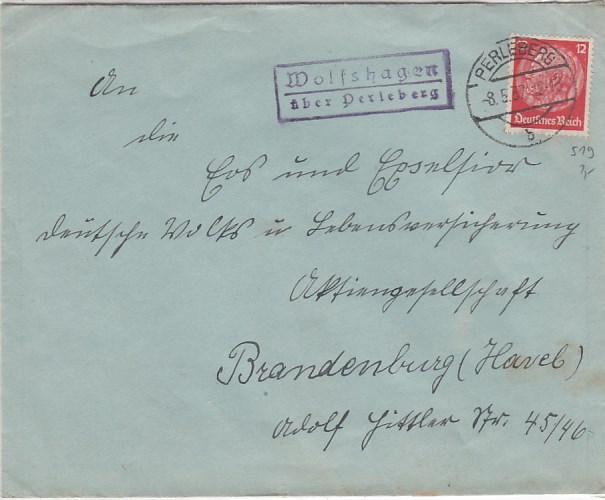 Wolfshagen
über Perleberg
PERLEBERG
-8.5.
b
12
Deutsches Reich
519
An
die
Eos und Excelsior
deutsche Volks u Lebensversicherung
Aktiengesellschaft
Brandenburg (Havel)
Adolf Hittler Str. 45/46